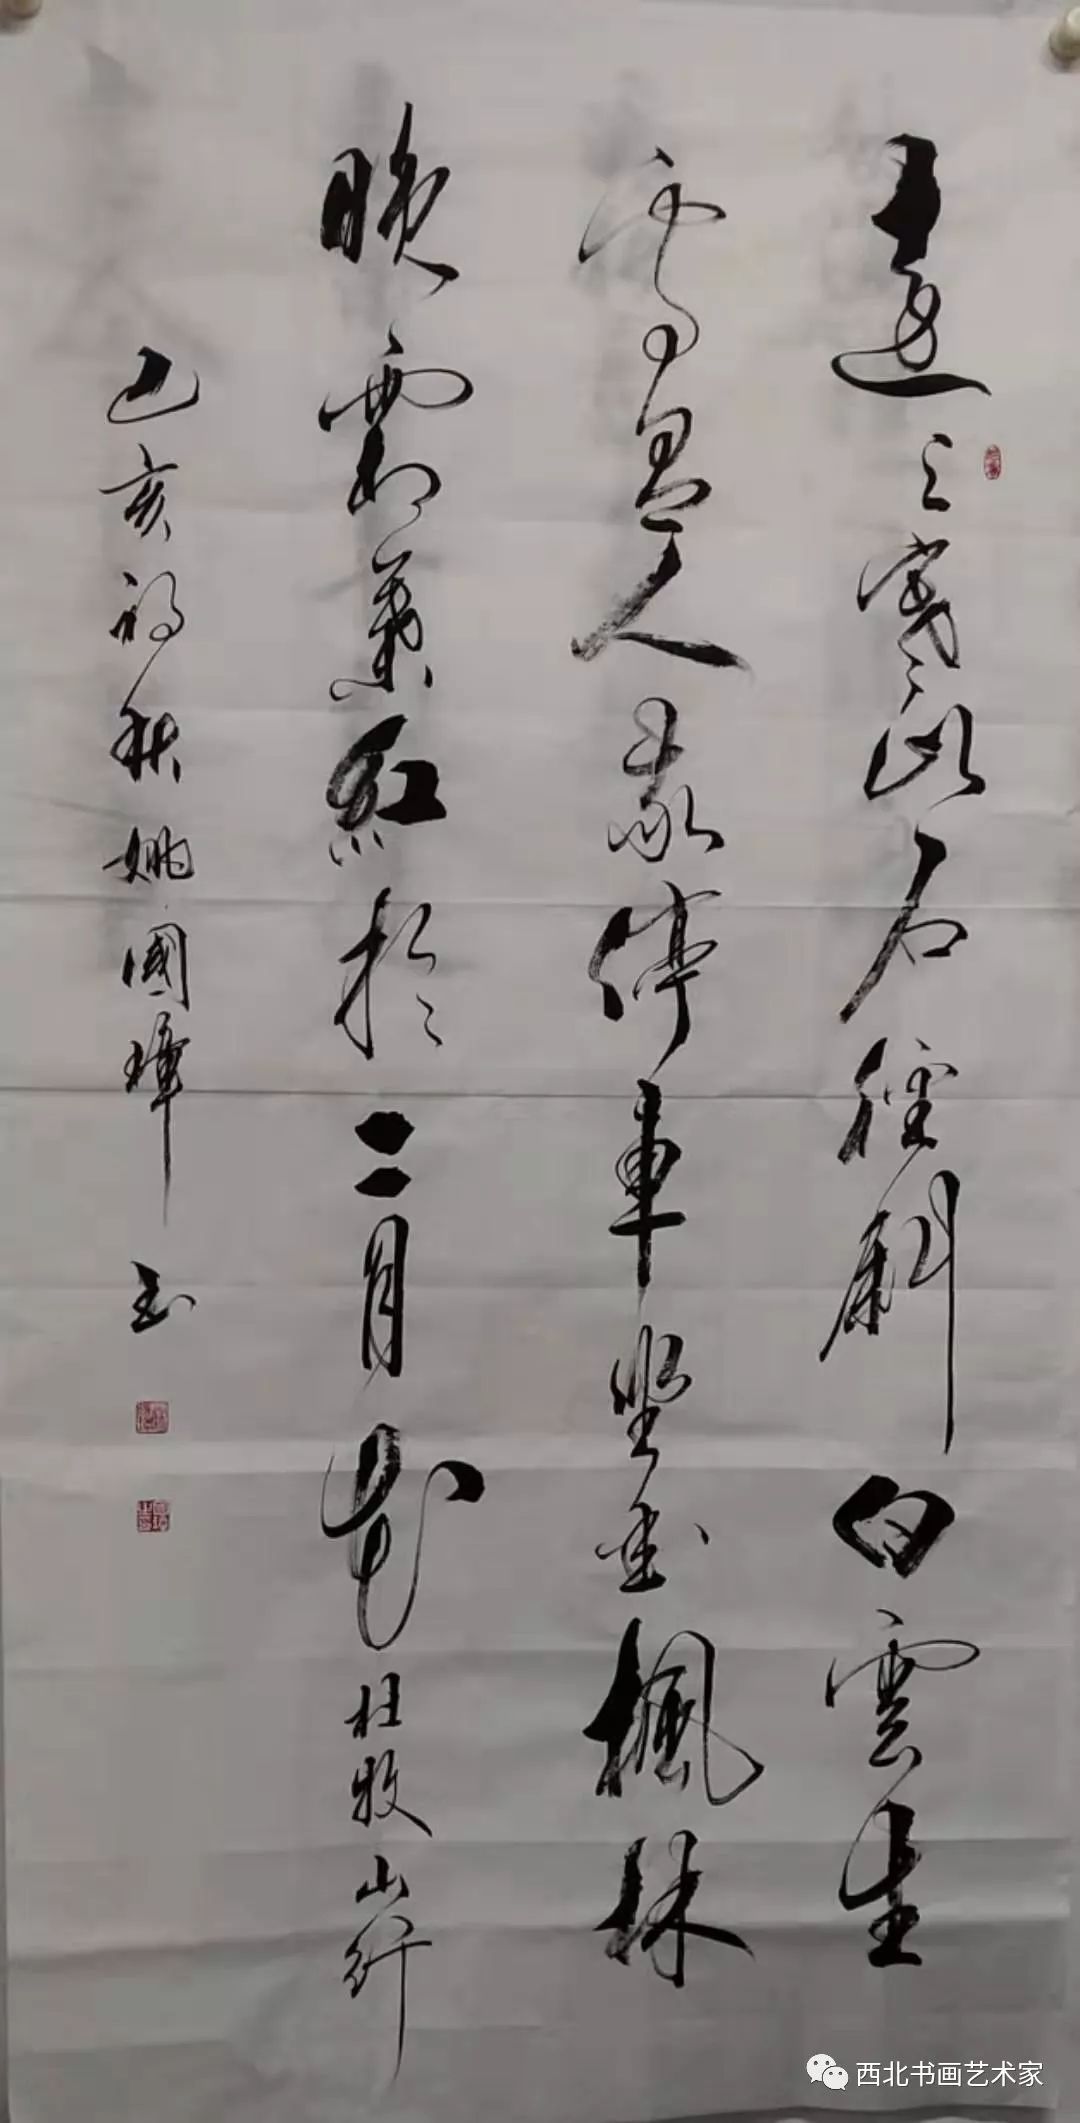 遠上寒山石徑斜白雲生
處有人家停車坐愛楓林
晚霜葉紅於二月花杜牧山行
己亥初秋姚國璋書
西北书画艺术家